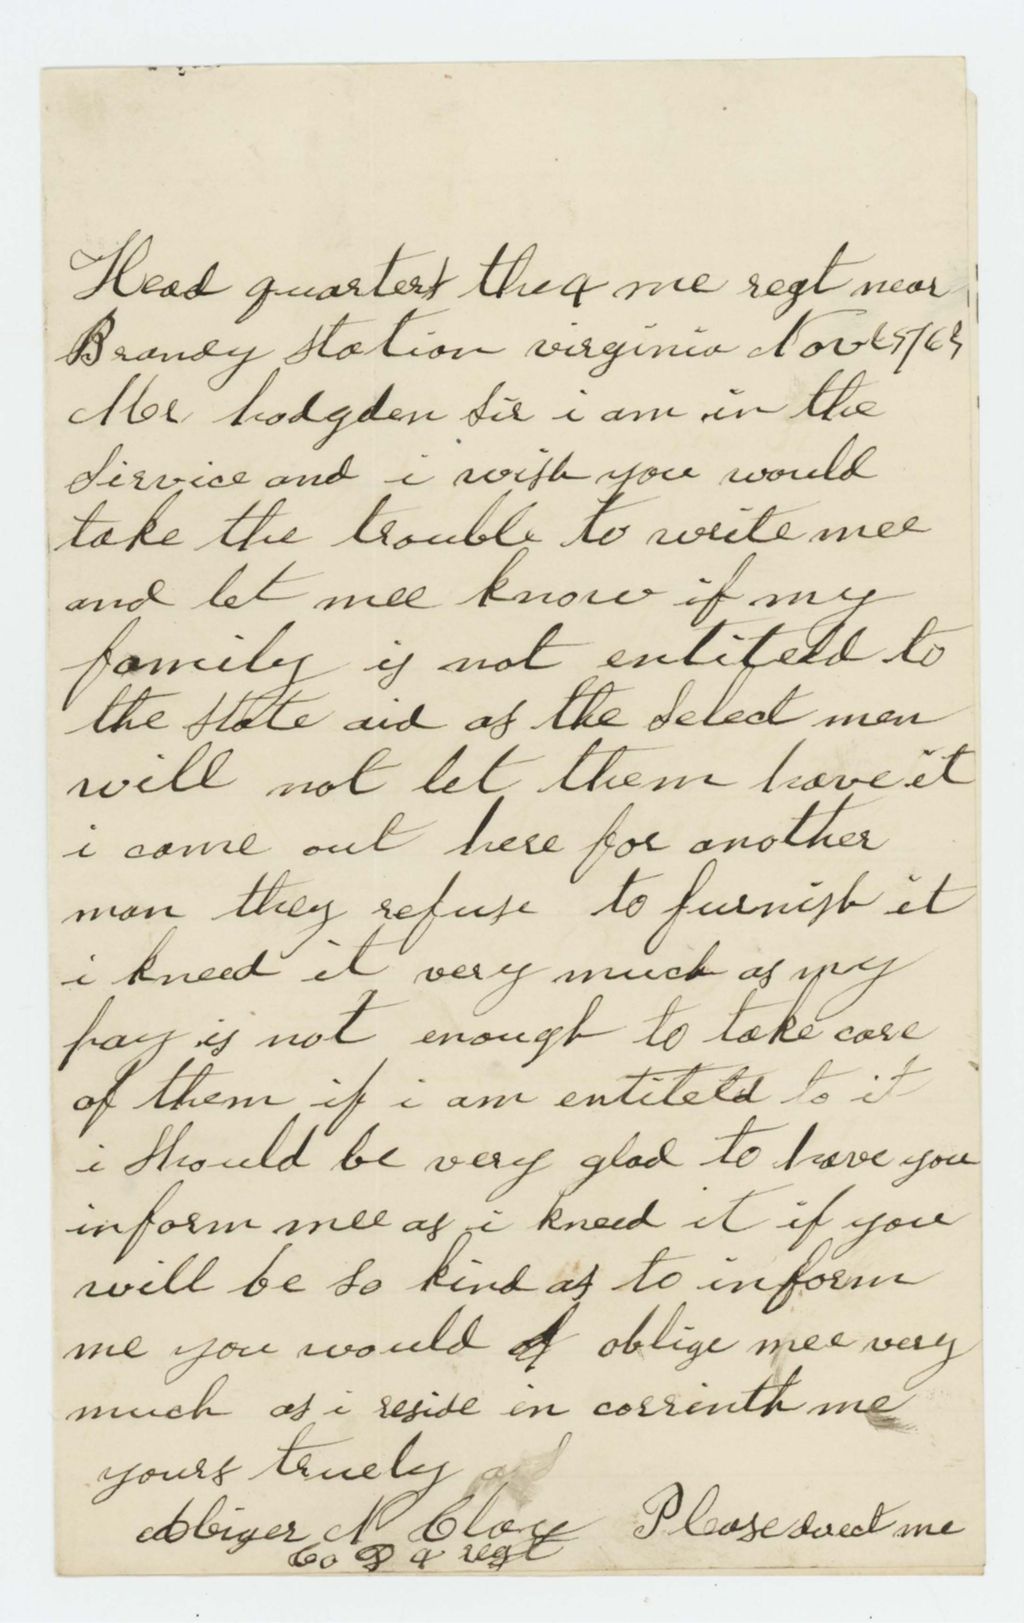 Head quarters the 4 me regt near
Brandy Station virginia Nov 25/63
Mr hodgden Sir i am in the
Sirvice and i wish you would
take the trouble to write mee
and let mee know if my
family is not entiteld to
the State aid as the Select men
will not let them have it
i came out here for another
man they refuse to furnish it
i kneed it very much as my
pay is not enough to take care
of them if i am entiteld to it
i Should be very glad to have you
inform mee as i kneed it if you
will be So kind as to inform
me you would oblige mee very
much as i reside in corrinth me
yours truely
Abiger N Clay Please direct me
Co 4 regt